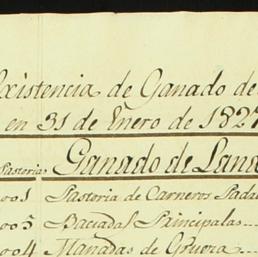 Existencia de Ganado de
en 31 de Enero de 1827
Pastorias Ganado de Lana
001 Pastoria de Carneros Pada
005 Baciadas Principalas
004 Manadas de